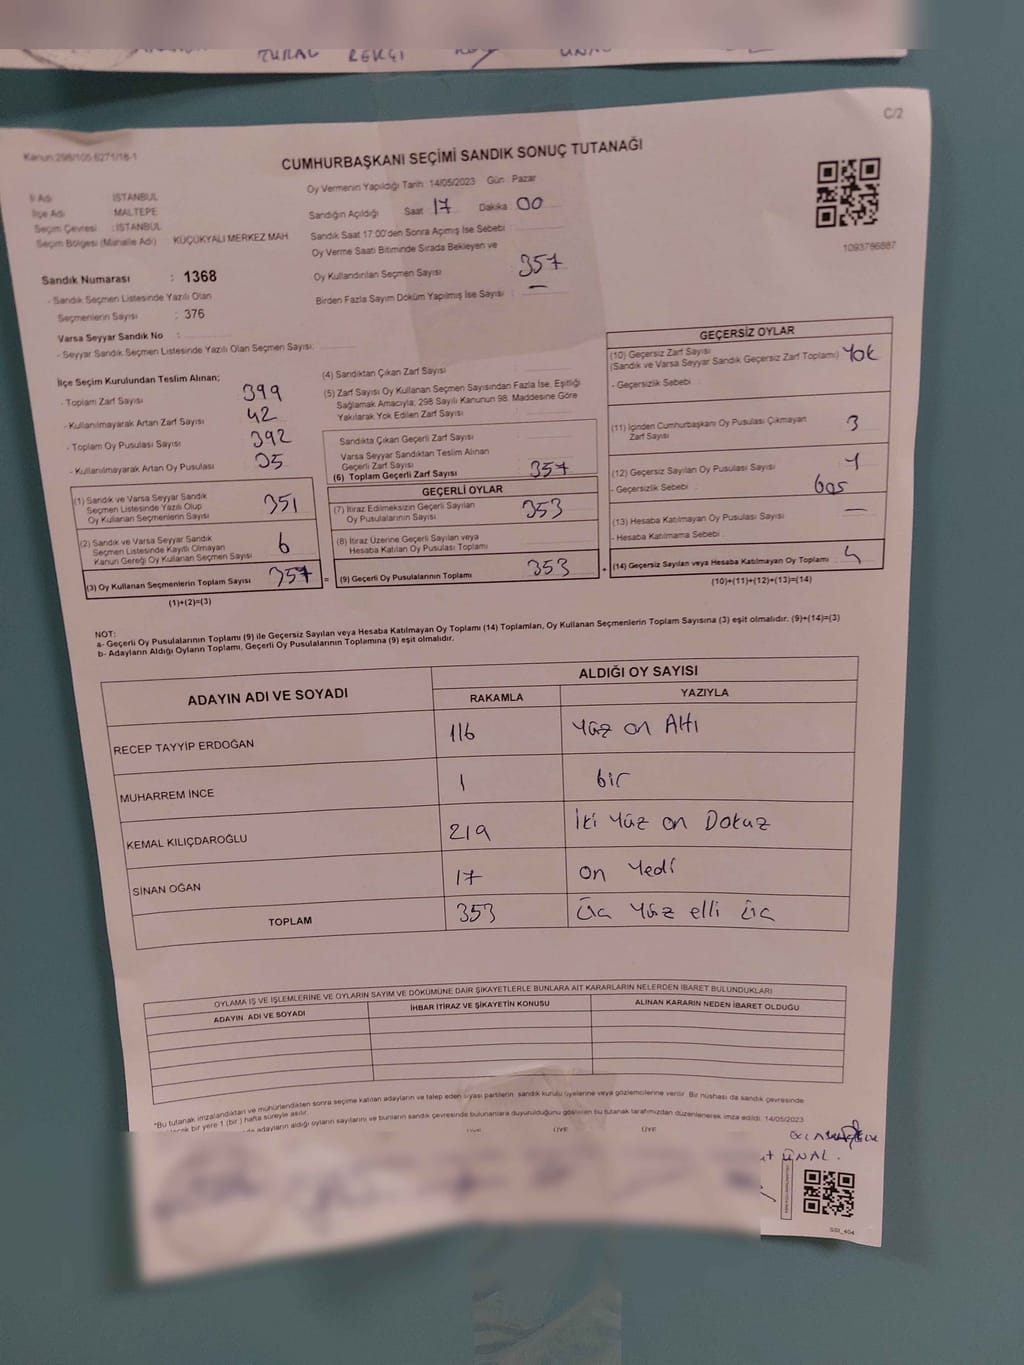 TURAL REKÇİ ÜNAL
C/2
Kanun:298/105 6271/16-1
CUMHURBAŞKANI SEÇİMİ SANDIK SONUÇ TUTANAĞI
İl Adı İSTANBUL
İlçe Adı MALTEPE
Seçim Çevresi : İSTANBUL
Seçim Bölgesi (Mahalle Adı) KÜÇÜKYALI MERKEZ MAH
Oy Vermenin Yapıldığı Tarih : 14/05/2023 Gün : Pazar
Sandığın Açıldığı Saat 17 Dakika 00
Sandık Saat 17:00'den Sonra Açımış İse Sebebi :
Oy Verme Saati Bitiminde Sırada Bekleyen ve
Oy Kullandırılan Seçmen Sayısı : 357
Birden Fazla Sayım Döküm Yapılmış İse Sayısı : —
1093786887
Sandık Numarası : 1368
- Sandık Seçmen Listesinde Yazılı Olan
Seçmenlerin Sayısı : 376
Varsa Seyyar Sandık No :
- Seyyar Sandık Seçmen Listesinde Yazılı Olan Seçmen Sayısı:
İlçe Seçim Kurulundan Teslim Alınan;
- Toplam Zarf Sayısı 399
- Kullanılmayarak Artan Zarf Sayısı 42
- Toplam Oy Pusulası Sayısı 392
- Kullanılmayarak Artan Oy Pusulası 35
(1) Sandık ve Varsa Seyyar Sandık
Seçmen Listesinde Yazılı Olup
Oy Kullanan Seçmenlerin Sayısı 351
(2) Sandık ve Varsa Seyyar Sandık
Seçmen Listesinde Kayıtlı Olmayan
Kanun Gereği Oy Kullanan Seçmen Sayısı 6
(3) Oy Kullanan Seçmenlerin Toplam Sayısı 357 =
(1)+(2)=(3)
(4) Sandıktan Çıkan Zarf Sayısı
(5) Zarf Sayısı Oy Kullanan Seçmen Sayısından Fazla İse, Eşitliği
Sağlamak Amacıyla; 298 Sayılı Kanunun 98. Maddesine Göre
Yakılarak Yok Edilen Zarf Sayısı
Sandıkta Çıkan Geçerli Zarf Sayısı
Varsa Seyyar Sandıktan Teslim Alınan
Geçerli Zarf Sayısı
(6) Toplam Geçerli Zarf Sayısı 357
GEÇERLİ OYLAR
(7) İtiraz Edilmeksizin Geçerli Sayılan
Oy Pusulalarının Sayısı 353
(8) İtiraz Üzerine Geçerli Sayılan veya
Hesaba Katılan Oy Pusulası Toplamı
(9) Geçerli Oy Pusulalarının Toplamı 353 +
GEÇERSİZ OYLAR
(10) Geçersiz Zarf Sayısı
(Sandık ve Varsa Seyyar Sandık Geçersiz Zarf Toplamı) Yok
- Geçersizlik Sebebi :
(11) İçinden Cumhurbaşkanı Oy Pusulası Çıkmayan
Zarf Sayısı 3
(12) Geçersiz Sayılan Oy Pusulası Sayısı 1
- Geçersizlik Sebebi : boş
(13) Hesaba Katılmayan Oy Pusulası Sayısı —
- Hesaba Katılmama Sebebi :
(14) Geçersiz Sayılan veya Hesaba Katılmayan Oy Toplamı 4
(10)+(11)+(12)+(13)=(14)
NOT:
a- Geçerli Oy Pusulalarının Toplamı (9) ile Geçersiz Sayılan veya Hesaba Katılmayan Oy Toplamı (14) Toplamları, Oy Kullanan Seçmenlerin Toplam Sayısına (3) eşit olmalıdır. (9)+(14)=(3)
b- Adayların Aldığı Oyların Toplamı, Geçerli Oy Pusulalarının Toplamına (9) eşit olmalıdır.
ADAYIN ADI VE SOYADI ALDIĞI OY SAYISI
RAKAMLA YAZIYLA
RECEP TAYYİP ERDOĞAN 116 Yüz on Altı
MUHARREM İNCE 1 bir
KEMAL KILIÇDAROĞLU 219 İki Yüz on Dokuz
SİNAN OĞAN 17 On Yedi
TOPLAM 353 Üç Yüz elli üç
OYLAMA İŞ VE İŞLEMLERİNE VE OYLARIN SAYIM VE DÖKÜMÜNE DAİR ŞİKAYETLERLE BUNLARA AİT KARARLARIN NELERDEN İBARET BULUNDUKLARI
ADAYIN ADI VE SOYADI İHBAR İTİRAZ VE ŞİKAYETİN KONUSU ALINAN KARARIN NEDEN İBARET OLDUĞU
*Bu tutanak imzalandıktan ve mühürlendikten sonra seçime katılan adayların ve talep eden siyasi partilerin sandık kurulu üyelerine veya gözlemcilerine verilir. Bir nüshası da sandık çevresinde
bir yere 1 (bir) hafta süreyle asılır.
adayların aldığı oyların sayılarını ve bunların sandık çevresinde bulunanlara duyurulduğunu gösteren bu tutanak tarafımızdan düzenlenerek imza edildi. 14/05/2023
ÜYE ÜYE ÜYE
ÜNAL
SSI_404